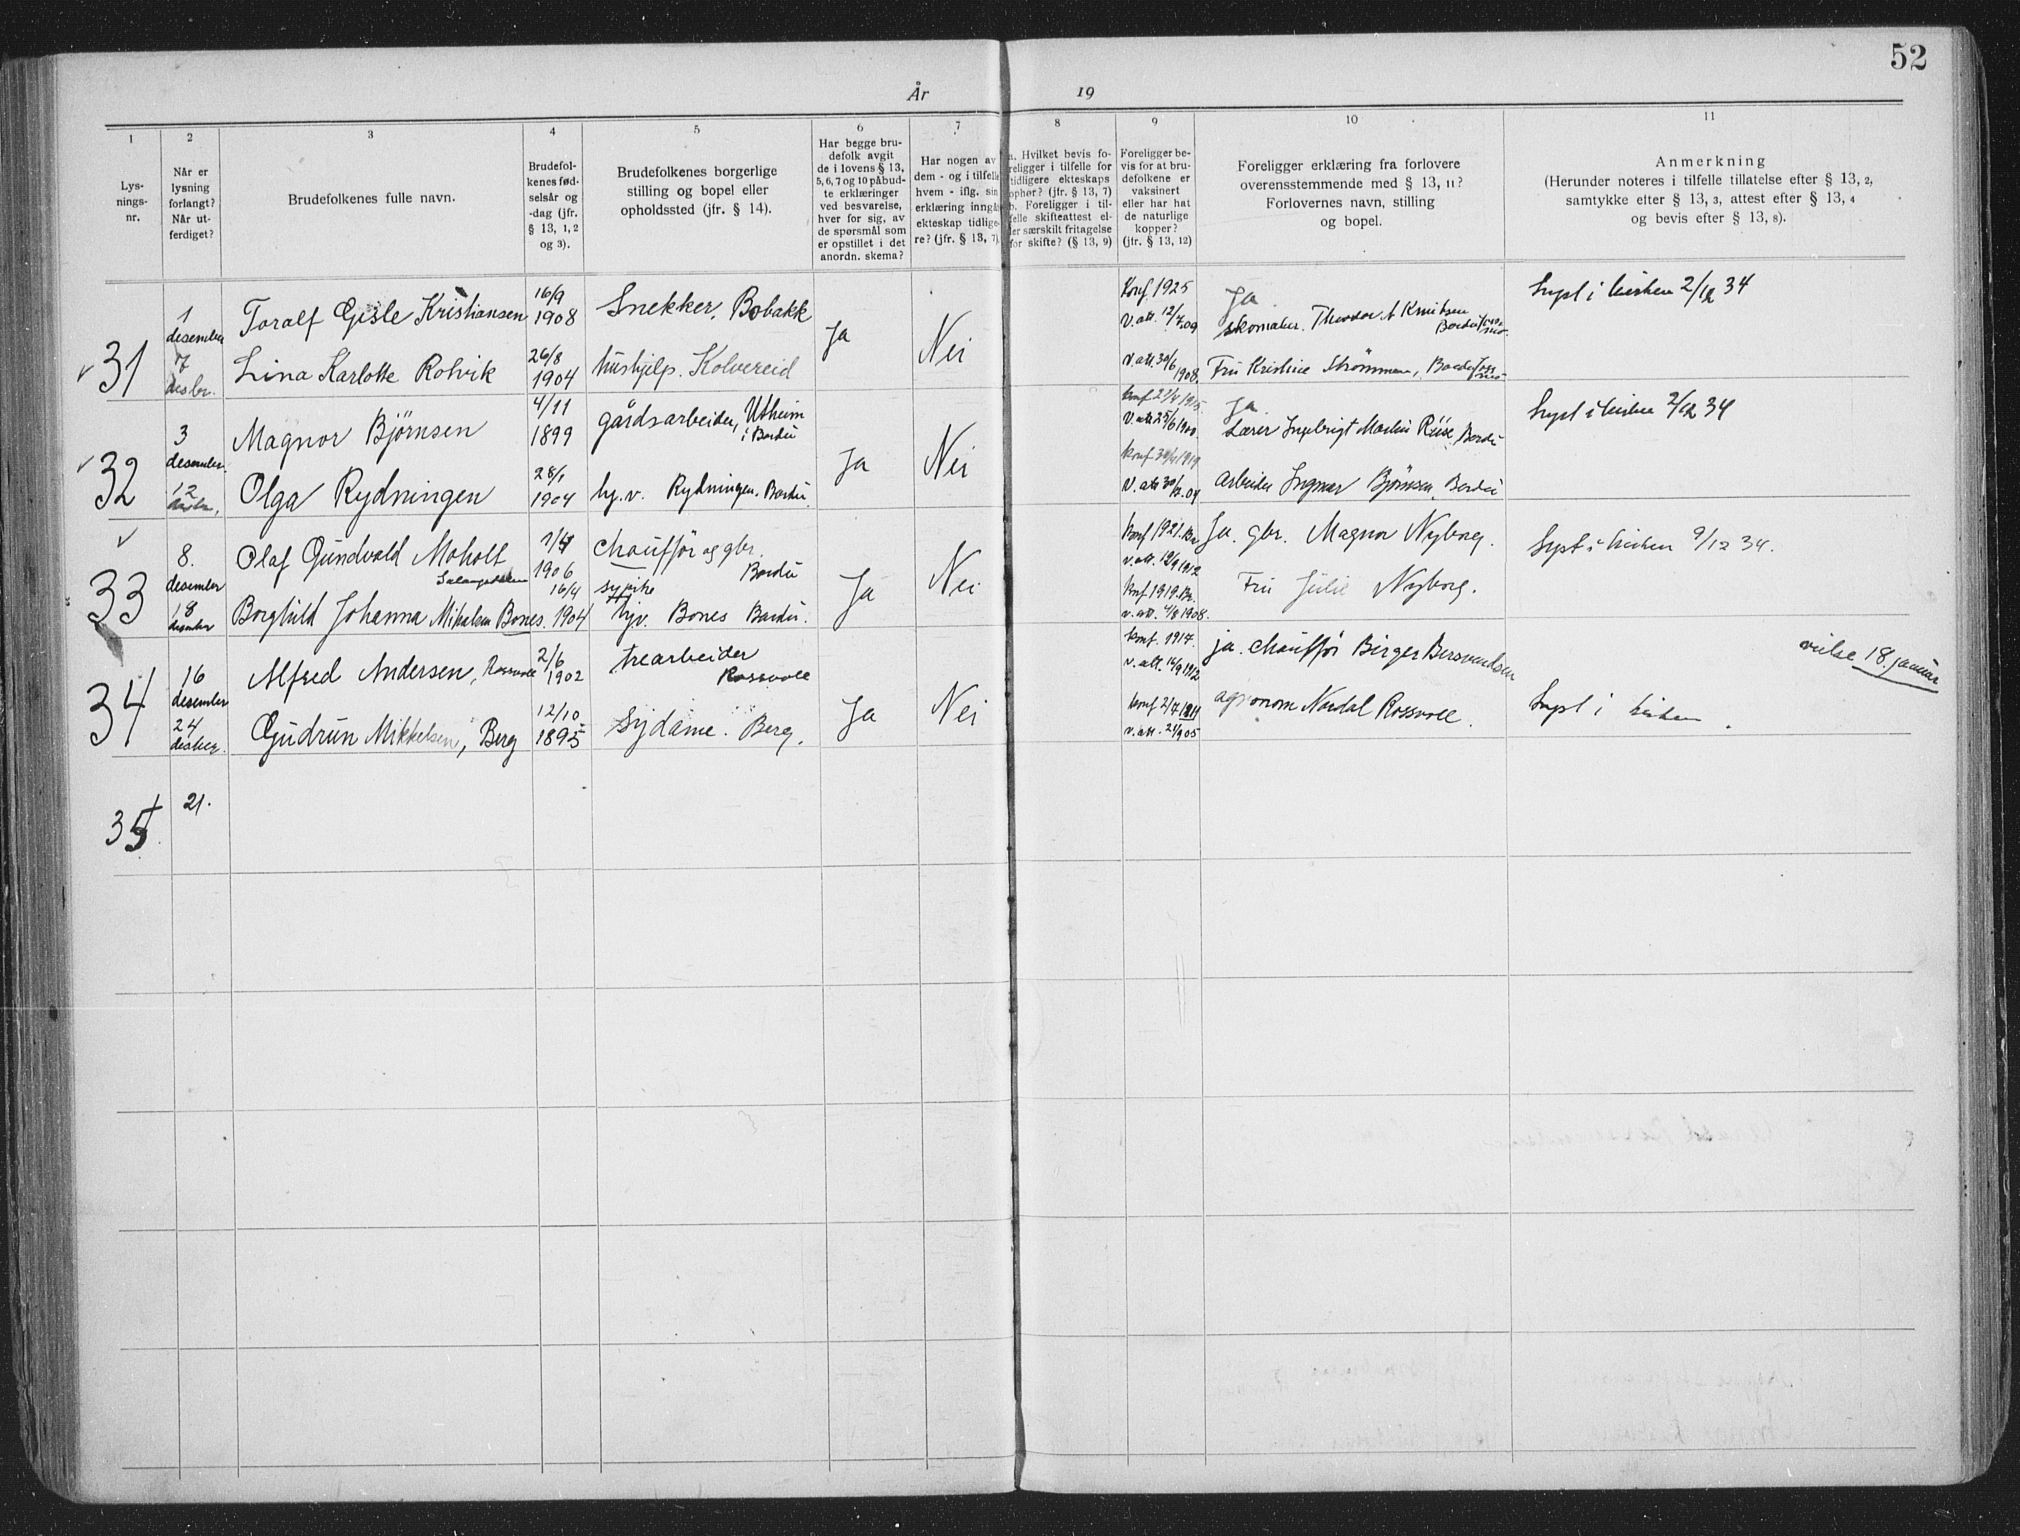 52
År 19
1 2 3 4 5 6 7 8 9 10 11
Lys-
nings-
nr.
Når er
lysning
forlangt?
Når ut-
ferdiget?
Brudefolkenes fulle navn.
Brudefol-
kenes fød-
selsår og
-dag (jfr.
§ 13, 1, 2
og 3).
Brudefolkenes borgerlige
stilling og bopel eller
opholdssted (jfr. § 14).
Har begge bru-
defolk avgit
de i lovens § 13,
5, 6, 7 og 10 påbud-
te erklæringer
ved besvarelse,
hver for sig, av
de spørsmål som
er opstillet i det
anordn. skema?
Har nogen av
dem - og i tilfelle
hvem - iflg. sin
erklæring inngå
ekteskap tidlige-
re? (jfr. § 13, 7)
a. Hvilket bevis fo-
religger i tilfelle for
tidligere ekteskaps
ophør? (jfr. § 13, 7)
b. Foreligger i til-
felle skifteattest el-
ler særskilt fritagelse
for skifte? (§ 13, 9)
Foreligger be-
vis for at bru-
defolkene er
vaksinert
eller har hat
de naturlige
kopper?
(jfr. § 13, 12)
Foreligger erklæring fra forlovere
overensstemmende med § 13, 11?
Forlovernes navn, stilling
og bopel.
Anmerkning
(Herunder noteres i tilfelle tillatelse efter § 13, 2,
samtykke efter § 13, 3, attest efter § 13, 4
og bevis efter § 13, 8).
31
1
desember
7
desbr.
Toralf Gisle Kristiansen
16/9
1908
Snekker, Bobakk
Lina Karlotte Rolvik
26/8
1904
hushjelp. Kolvereid
Ja
Nei
Konf 1925
V. att. 12/4.09
V. att. 30/6
1908.
Ja
skomaker. Theodor A Knutsen
Fru Kristine Strømmen,
Lyst i kirken 2/12 34
32
3
desember.
12
Magnor Bjørnsen
4/11
1899
gårdsarbeider, Utheim
i Bardu
Olga Rydningen
28/1
1904
hg. v. Rydningen. Bardu.
Ja
Nei
V. att 25/6 1900
Ja
Lærer Ingebrigt Martin Riise, Bardu
arbeider Ingmar Bjørnsen, Bardu
Lyst i kirken 2/12 34
33
8.
desember
18
desember
Olaf Gundvald Moholt
1906
chauffør og gbr.
Bardu
Borghild Johanna Mikalsen Bones.
16/4
1904
hjv. Bones Bardu.
Ja
Nei
Konf 1921. Br.
v. att. 12/9 1912
Konf. 1919. Br.
v. att. 4/8 1908.
Ja. gbr. Magnor Nyborg.
Fru Julie Nyborg.
Lyst i kirken 9/12 34.
34
16
desember
24
Alfred Andersen, Rossvoll
2/6
1902
trearbeider
Rossvoll
Gudrun Mikkelsen, Berg
12/10
1895
Sydame. Berg.
Ja
Nei
konf. 1914.
v. att. 14/9 1912
konf 2/7 1911
v. att. 2/9 05
ja. chauffør Birger Bersvendsen
agronom Nordal Rossvoll.
Lyst i kirken.
vielse 18. januar
35
21.